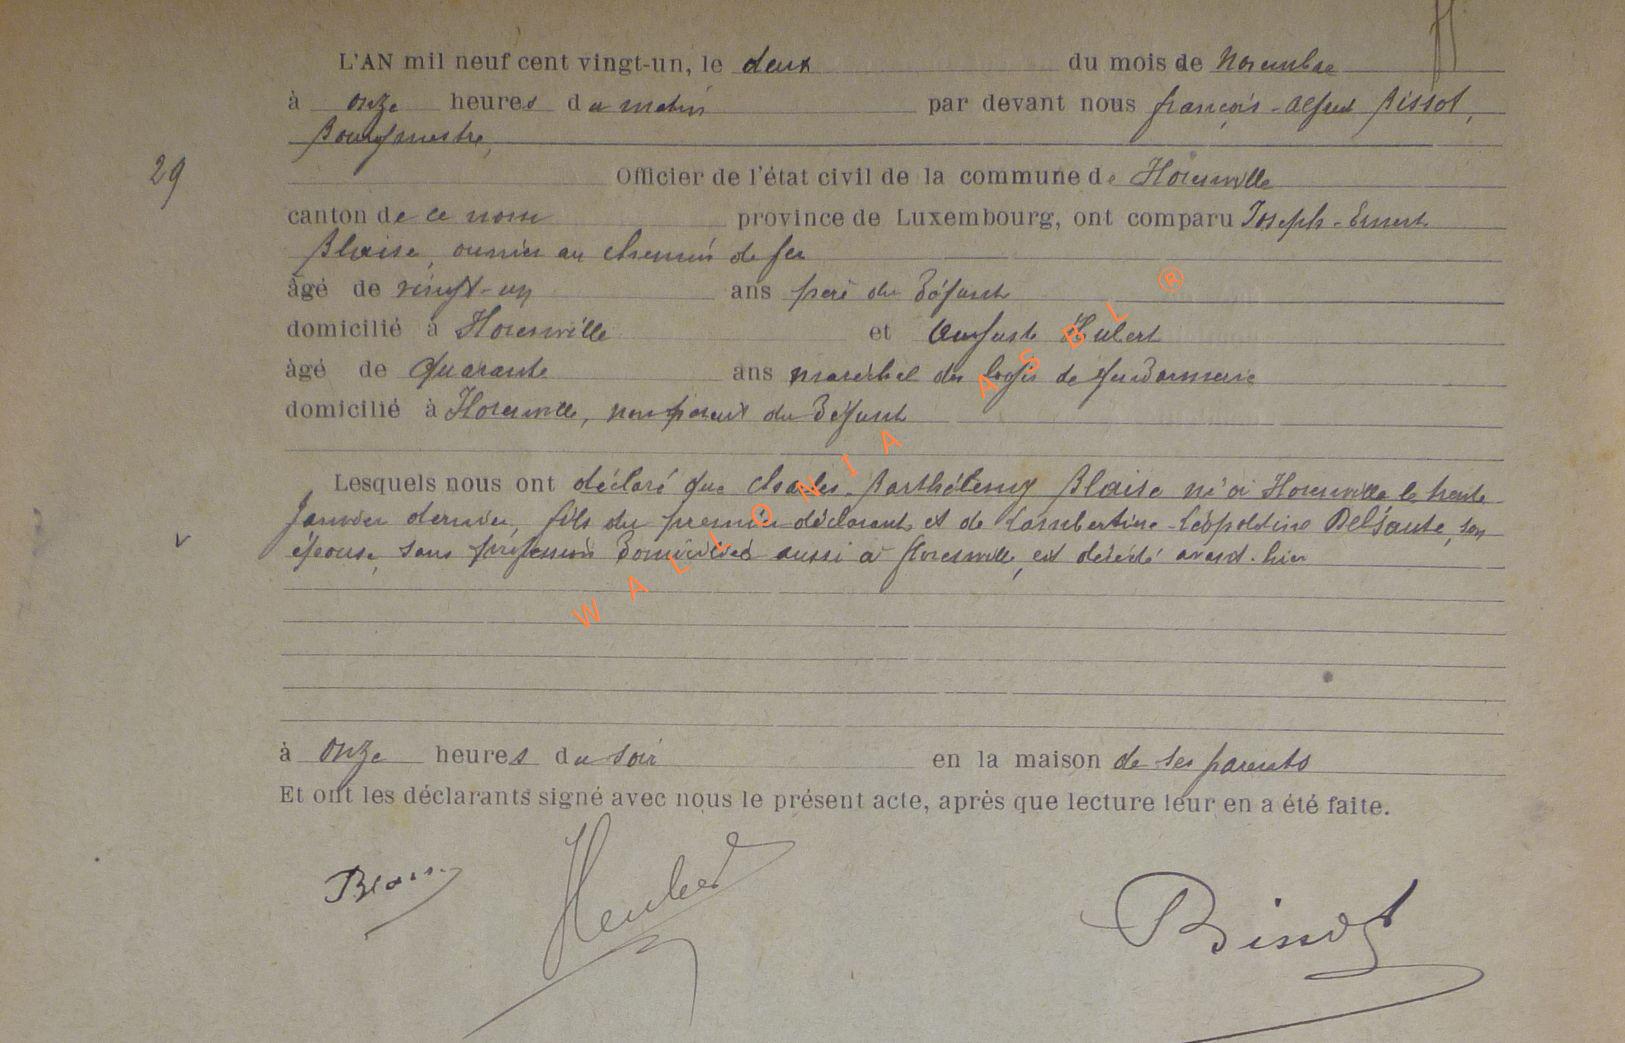 L'AN mil neuf cent vingt-un, le deux du mois de Novembre
à onze heures du matin par devant nous françois-Alfred Bissot,
Bourgmestre,
29
Officier de l'état civil de la commune de Florenville
canton de ce nom province de Luxembourg, ont comparu Joseph-Ernest
Blaise, ouvrier au chemin de fer
âgé de vingt-un ans père du défunt
domicilié à Florenville et Auguste Hubert
âgé de quarante ans maréchal des logis de gendarmerie
domicilié à Florenville, non parent du défunt
Lesquels nous ont déclaré que Charles-Barthélemy Blaise né à Florenville le trente
Janvier dernier, fils du premier déclarant et de Lambertine-Léopoldine Delsaute, son
épouse, sans profession domiciliée aussi à florenville, est décédé avant-hier
à onze heures du soir en la maison de ses parents
Et ont les déclarants signé avec nous le présent acte, après que lecture leur en a été faite.
Heubert Bissot
WALLONIA ASBL ®